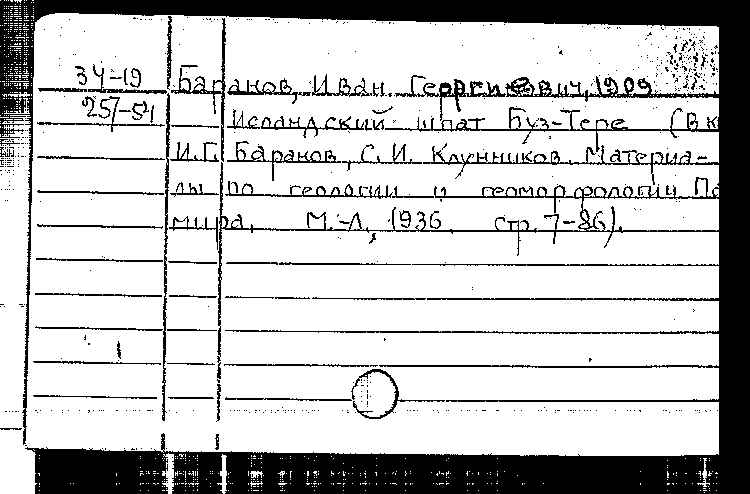 34-19 Баранов, Иван Георгиевич, 1909
Исландский шпат Буз-Тере (В к
И.Г. Баранов, С.И. Клунников. Материа-
лы по геологии и геоморфологии Па
мира, М.-Л., 1936, стр. 7-86).